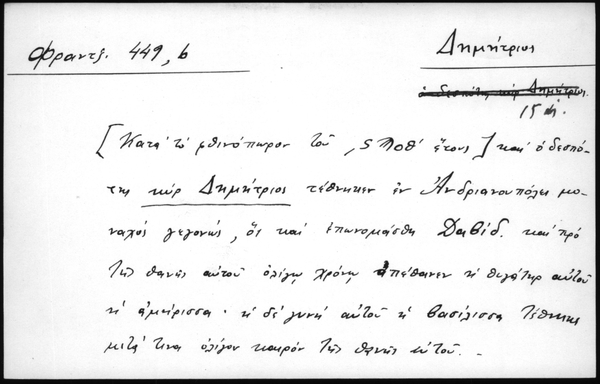 Φραντζ. 449, b
Δημήτριος
ὁ δεσπότης κύρ Δημήτριος.
15
[Κατά τό φθινόπωρον τοῦ ,ϛϡοθ' ἔτους] καί ὁ δεσπό-
της κύρ Δημήτριος τέθνηκεν ἐν Ἀνδριανουπόλει μο-
ναχός γεγονώς, ὅς καί ἐπωνομάσθη Δαβίδ. καί πρό
τῆς θανῆς αὐτοῦ ὀλίγῳ χρόνῳ ἀπέθανεν ἡ θυγάτηρ αὐτοῦ
ἡ ἀμήρισσα · ἡ δέ γυνή αὐτοῦ ἡ βασίλισσα τέθνηκε
μετά τινα ὀλίγον καιρόν τῆς θανῆς αὐτοῦ. -